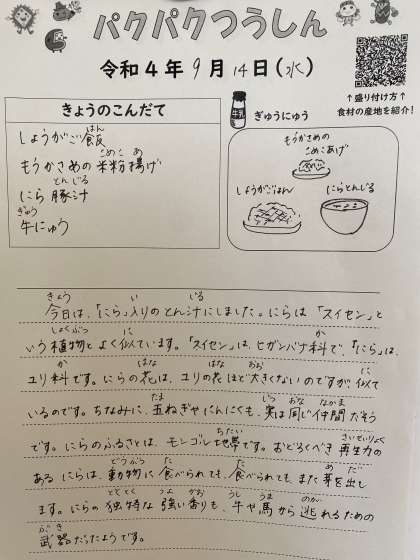 パクパクつうしん
令和4年9月14日(水)
↑盛り付け方↑
食材の産地を紹介!
きょうのこんだて
しょうがご飯
もうかさめの米粉揚げ
にら豚汁
牛にゅう
牛乳
ぎゅうにゅう
もうかさめの
こめこあげ
しょうがごはん
にらとんじる
今日は、「にら」入りのとん汁にしました。にらは「スイセン」と
いう植物とよく似ています。「スイセン」は、ヒガンバナ科で、「にら」は、
ユリ科です。にらの花は、ユリの花ほど大きくないのですが、似て
いるのです。ちなみに、玉ねぎやにんにくも、実は同じ仲間だそう
です。にらのふるさとは、モンゴル地帯です。おどろくべき再生力の
あるにらは、動物に食べられても、食べられてもまた芽を出し
ます。にらの独特な強い香りも、牛や馬から逃れるための
武器だったようです。